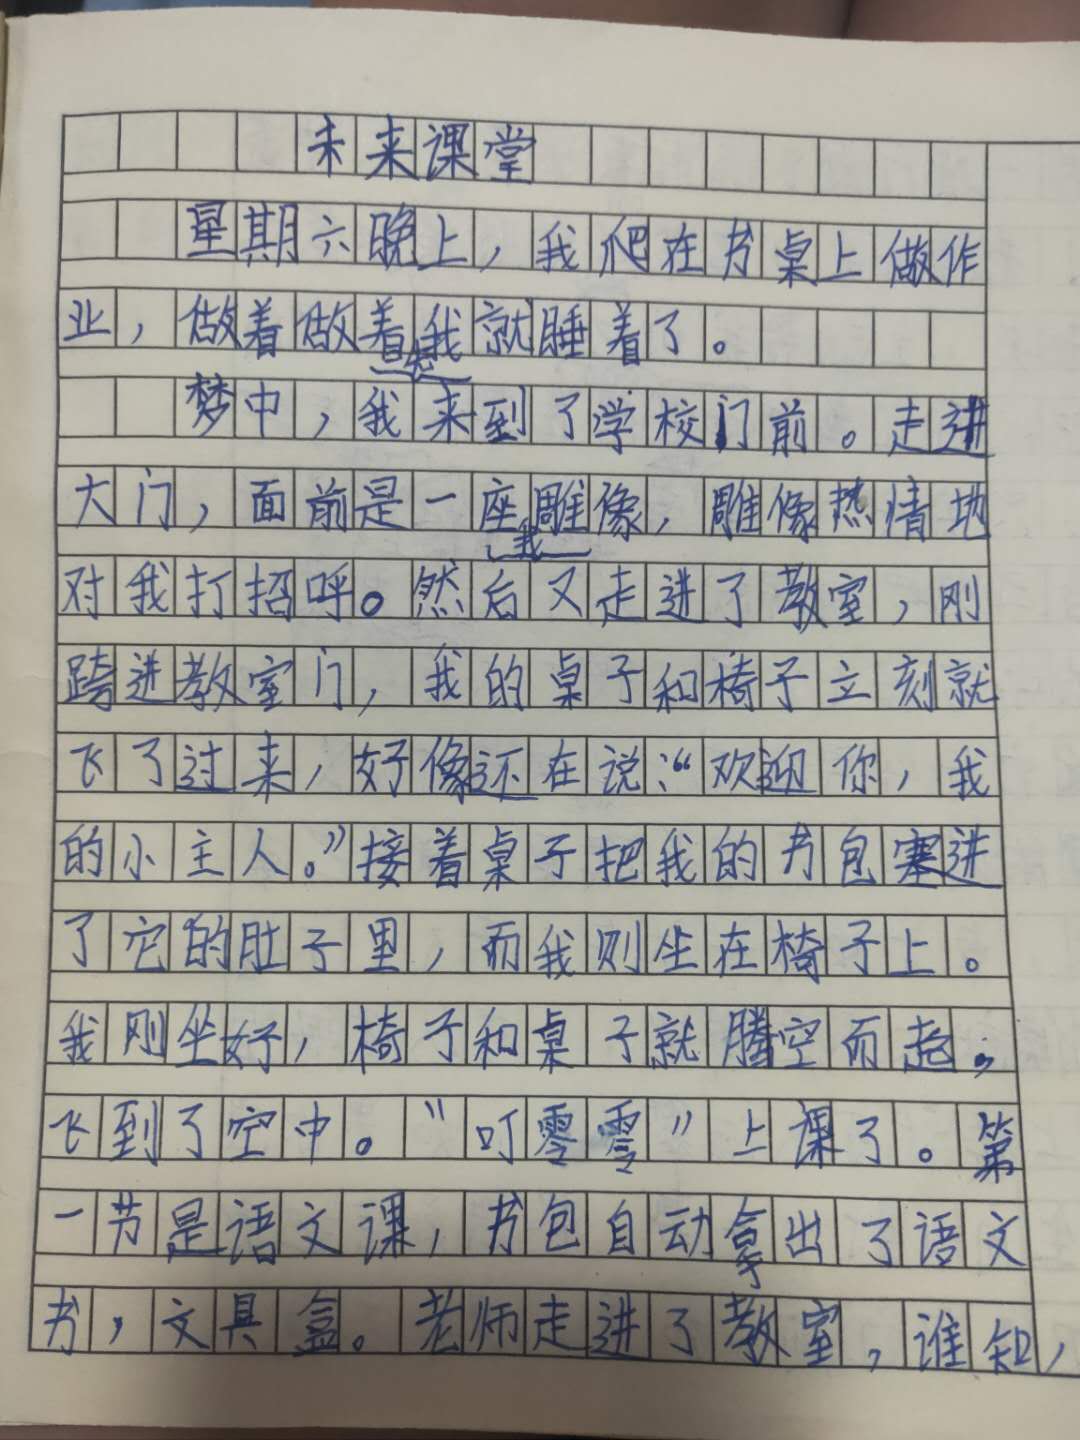 未来课堂
星期六晚上，我爬在书桌上做作
业，做着做着我就睡着了。
梦中，我来到了学校门前。走进
大门，面前是一座雕像，雕像热情地
对我打招呼。然后又走进了教室，刚
跨进教室门，我的桌子和椅子立刻就
飞了过来，好像还在说：“欢迎你，我
的小主人。”接着桌子把我的书包塞进
了它的肚子里，而我则坐在椅子上。
我刚坐好，椅子和桌子就腾空而起，
飞到了空中。“叮零零”上课了。第
一节是语文课，书包自动拿出了语文
书，文具盒。老师走进了教室，谁知，